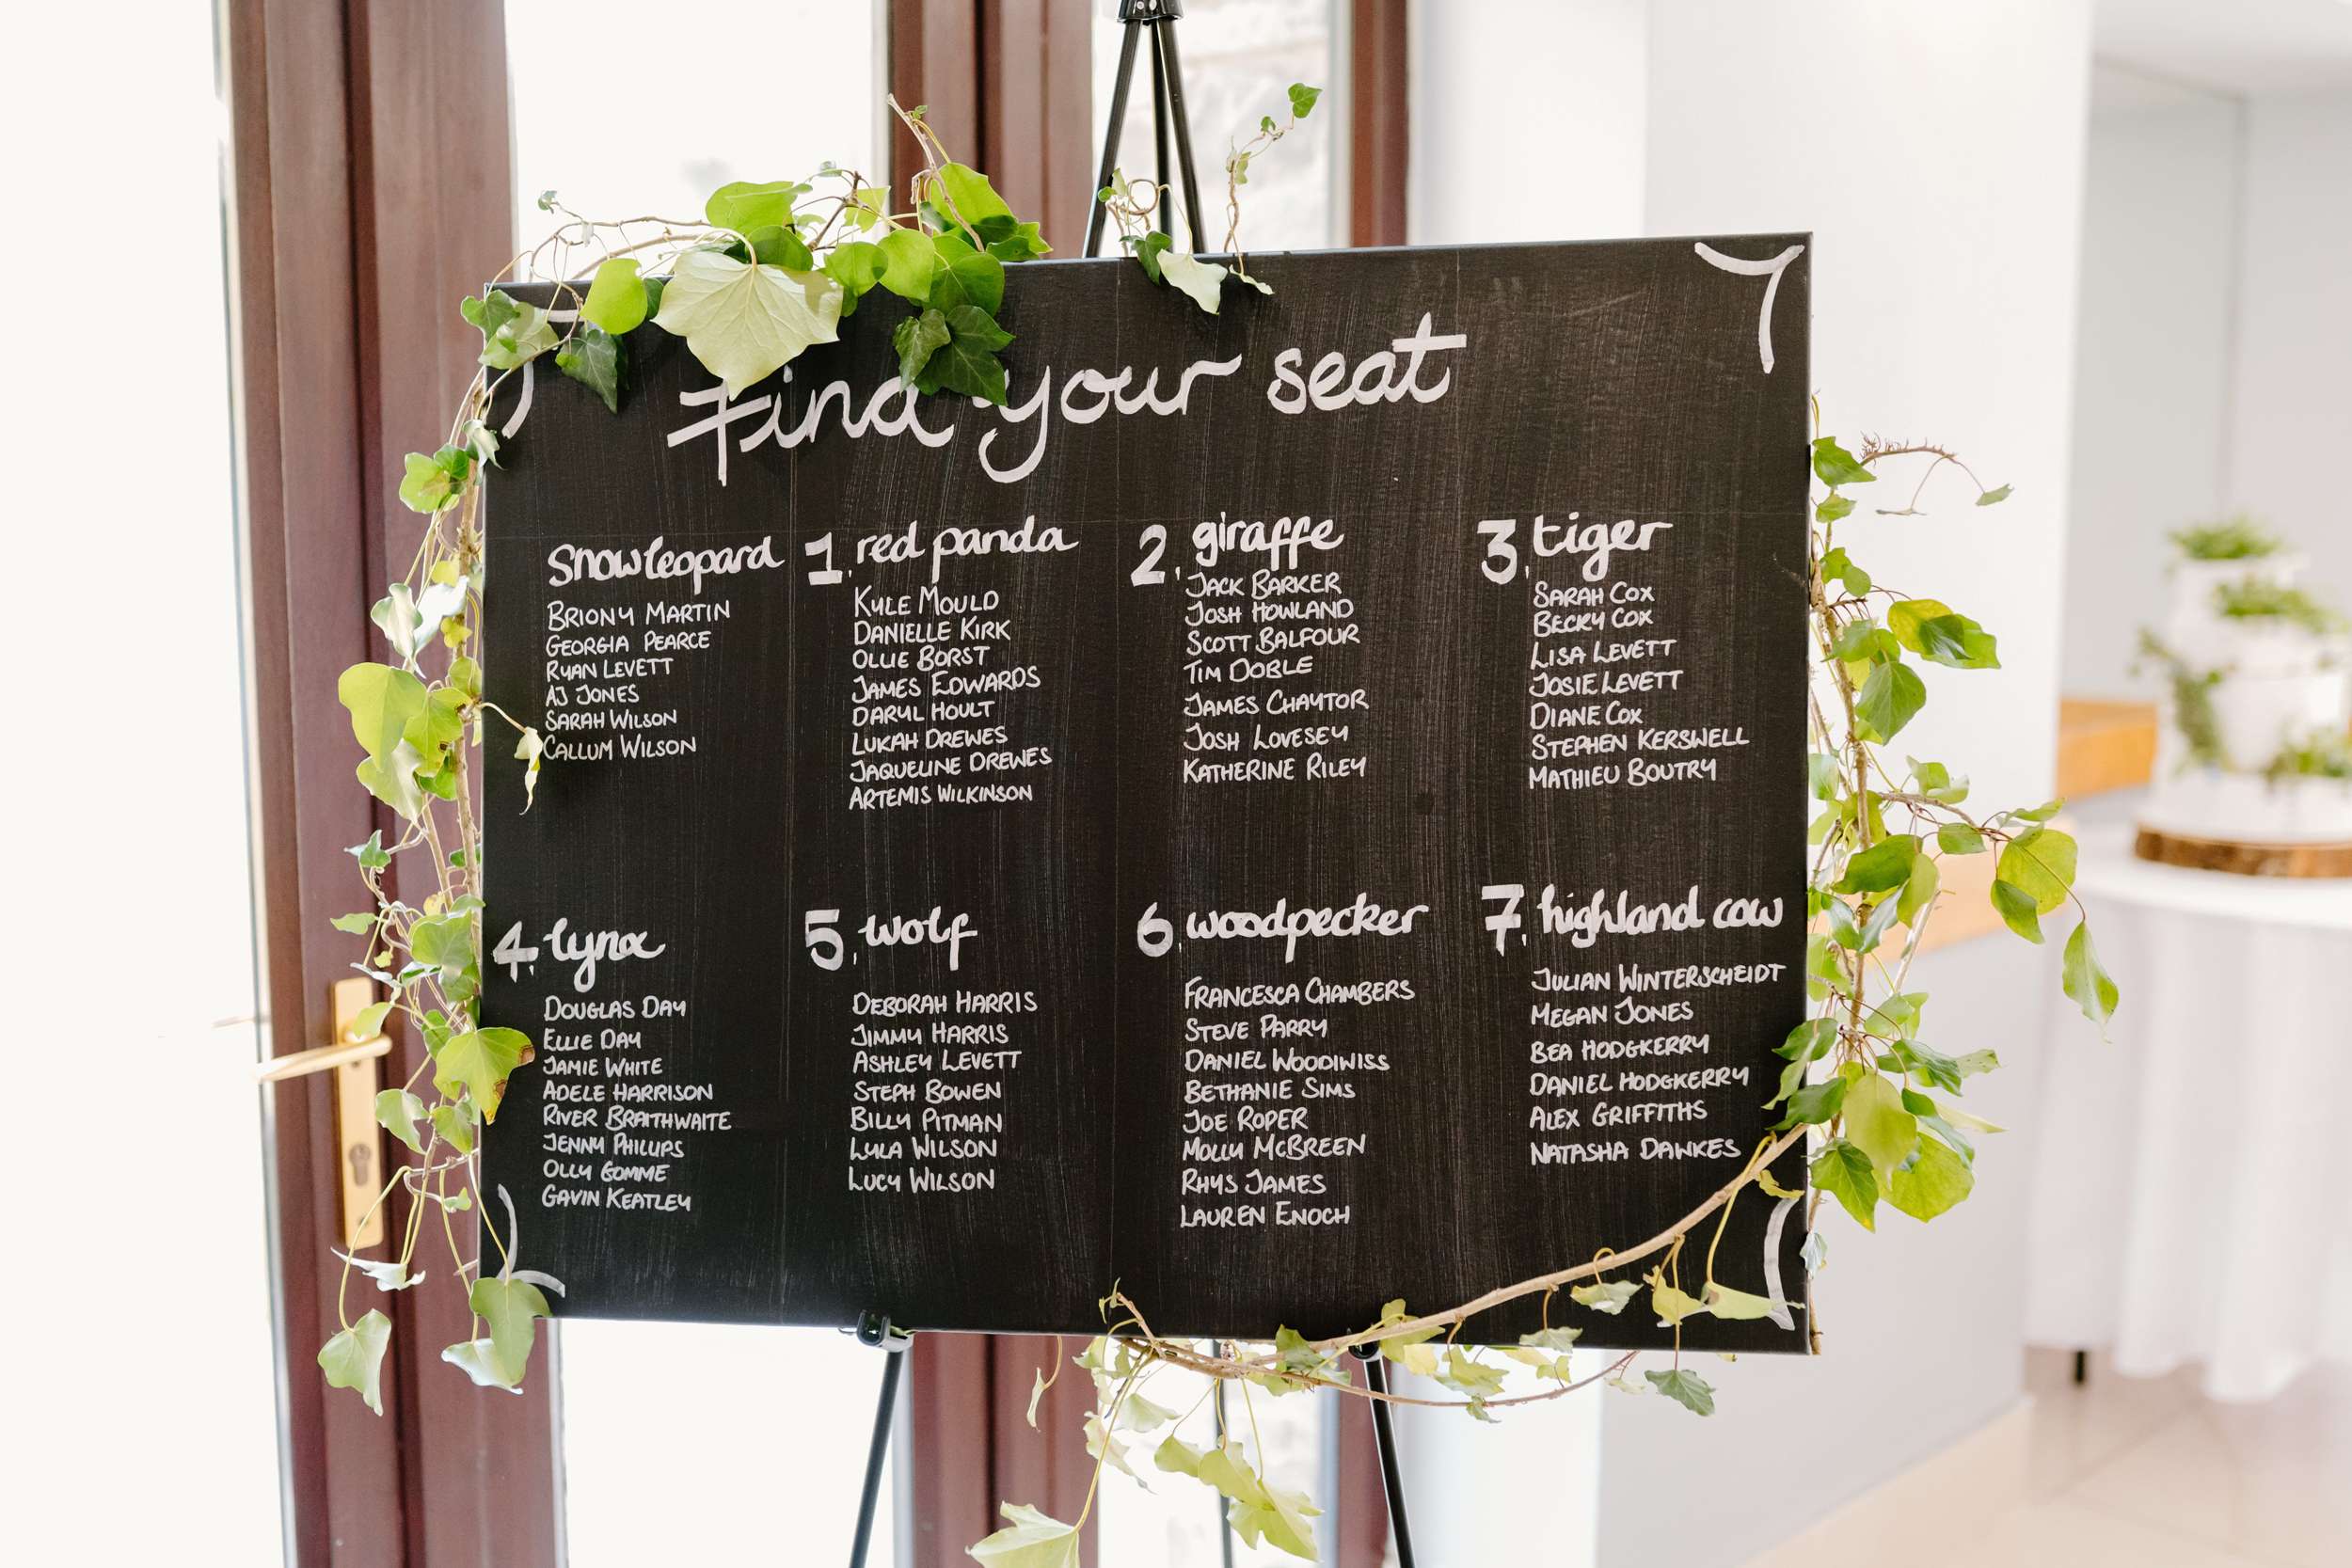 Find your seat
snow leopard
BRIONY MARTIN
GEORGIA PEARCE
RYAN LEVETT
AJ JONES
SARAH WILSON
CALLUM WILSON
1. red panda
KYLE MOULD
DANIELLE KIRK
OLLIE BORST
JAMES EDWARDS
DARYL HOULT
LUKAH DREWES
JAQUELINE DREWES
ARTEMIS WILKINSON
2. giraffe
JACK BARKER
JOSH HOWLAND
SCOTT BALFOUR
TIM DOBLE
JAMES CHAYTOR
JOSH LOVESEY
KATHERINE RILEY
3. tiger
SARAH COX
BECKY COX
LISA LEVETT
JOSIE LEVETT
DIANE COX
STEPHEN KERSWELL
MATHIEU BOUTRY
4. lynx
DOUGLAS DAY
ELLIE DAY
JAMIE WHITE
ADELE HARRISON
RIVER BRAITHWAITE
JENNY PHILLIPS
OLLY GOMME
GAVIN KEATLEY
5. wolf
DEBORAH HARRIS
JIMMY HARRIS
ASHLEY LEVETT
STEPH BOWEN
BILLY PITMAN
LULA WILSON
LUCY WILSON
6. woodpecker
FRANCESCA CHAMBERS
STEVE PARRY
DANIEL WOODIWISS
BETHANIE SIMS
JOE ROPER
MOLLY MCBREEN
RHYS JAMES
LAUREN ENOCH
7. highland cow
JULIAN WINTERSCHEIDT
MEGAN JONES
BEA HODGKERRY
DANIEL HODGKERRY
ALEX GRIFFITHS
NATASHA DAWKES